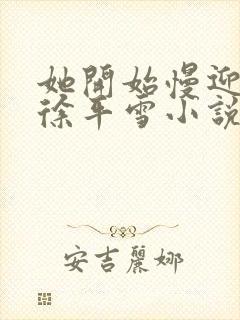 她開始慢迎
徐平雪小說
安吉麗娜